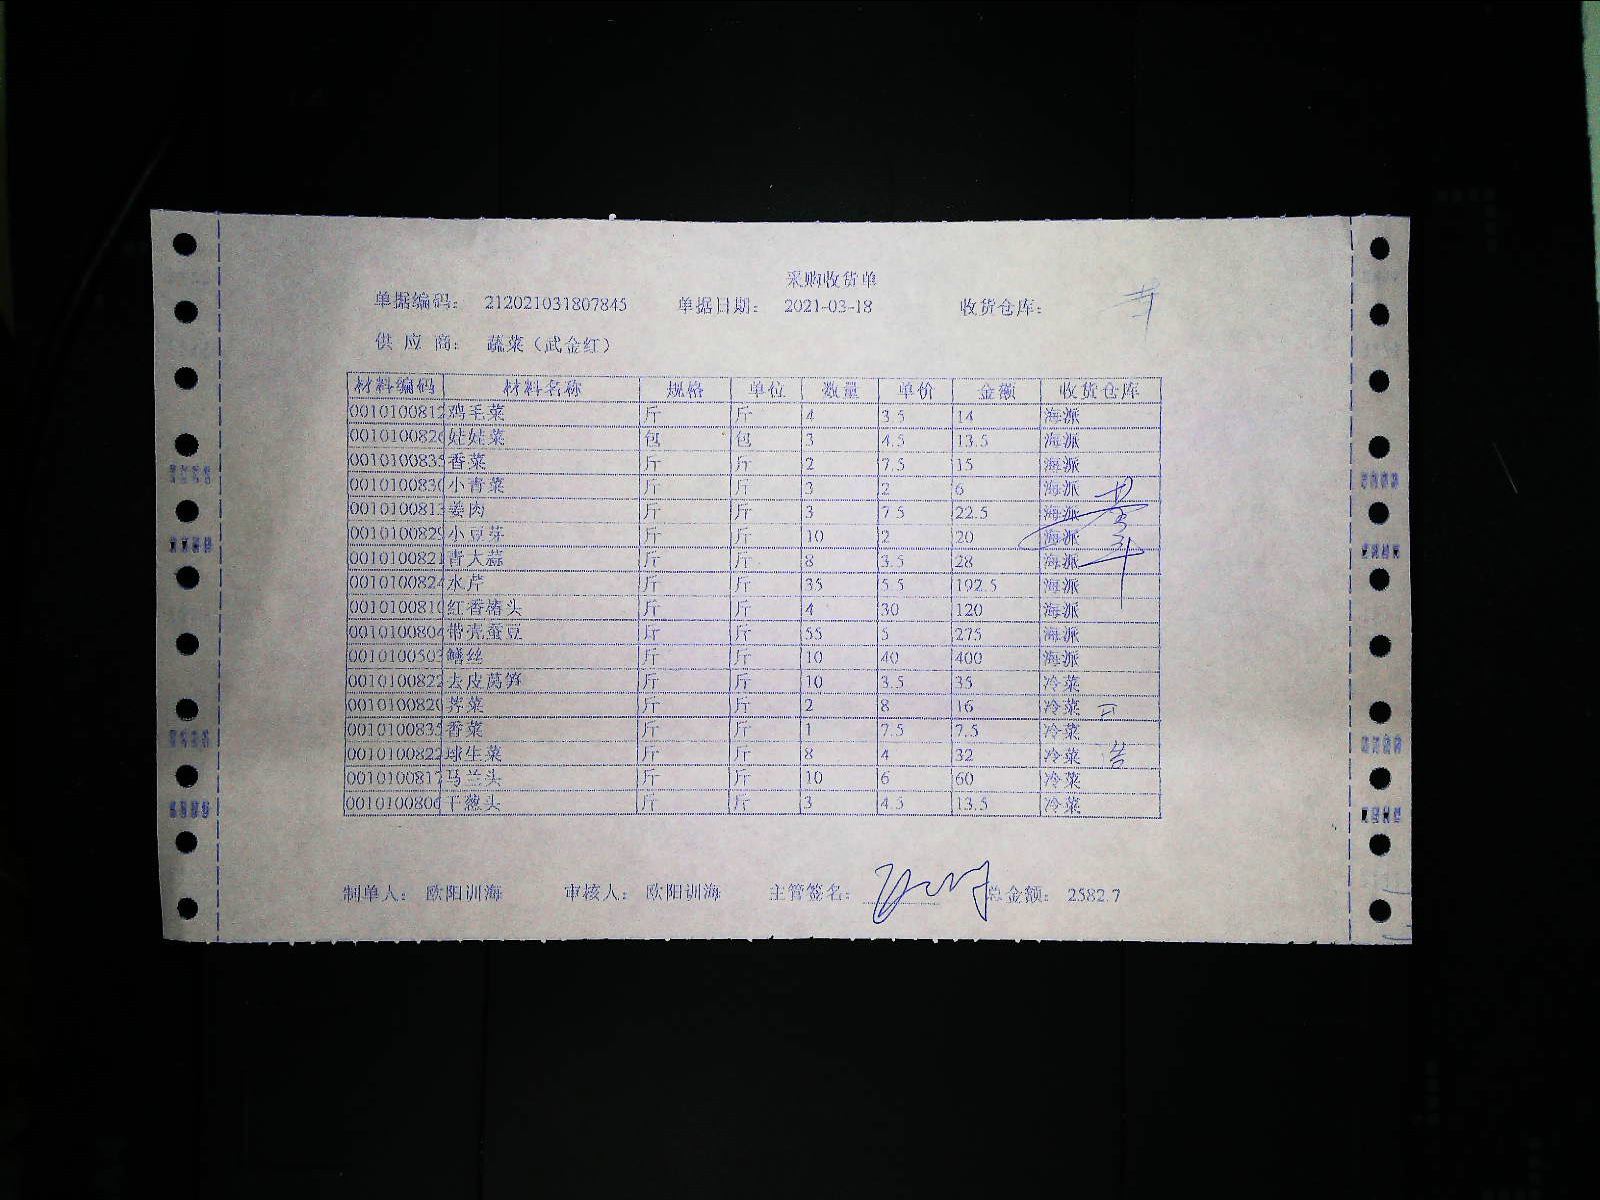 采购收货单
单据编码： 212021031807845 单据日期： 2021-03-18 收货仓库：
供 应 商： 蔬菜（武金红）
材料编码 材料名称 规格 单位 数量 单价 金额 收货仓库
0010100812 鸡毛菜 斤 斤 4 3.5 14 海派
001010082 娃娃菜 包 包 3 4.5 13.5 海派
0010100835 香菜 斤 斤 2 7.5 15 海派
001010083 小青菜 斤 斤 3 2 6 海派
001010081 姜肉 斤 斤 3 7.5 22.5 海派
0010100829 小豆芽 斤 斤 10 2 20 海派
0010100821 青大蒜 斤 斤 8 3.5 28 海派
0010100824 水芹 斤 斤 35 5.5 192.5 海派
0010100810 红香椿头 斤 斤 4 30 120 海派
0010100804 带壳蚕豆 斤 斤 55 5 275 海派
001010050 鳝丝 斤 斤 10 40 400 海派
0010100822 去皮莴笋 斤 斤 10 3.5 35 冷菜
0010100820 荠菜 斤 斤 2 8 16 冷菜
0010100835 香菜 斤 斤 1 7.5 7.5 冷菜
0010100822 球生菜 斤 斤 8 4 32 冷菜
0010100817 马兰头 斤 斤 10 6 60 冷菜
0010100806 干葱头 斤 斤 3 4.5 13.5 冷菜
制单人： 欧阳训海 审核人： 欧阳训海 主管签名： 总金额： 2582.7